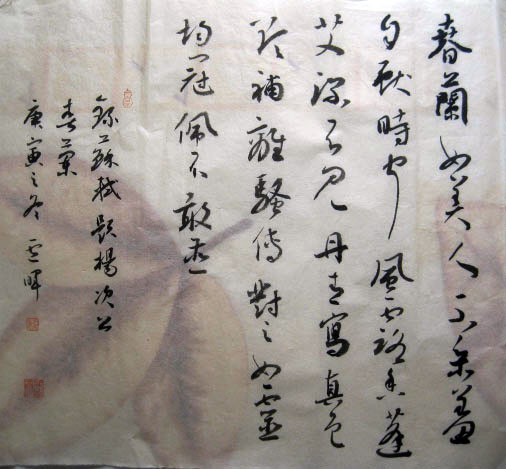 春蘭如美人不采羞
自獻時聞風露香蓬
艾深不見丹青寫真色
欲補離騷傳對之如靈
均冠佩不敢燕
錄蘇軾題楊次公
春蘭
庚寅之冬 雲暉